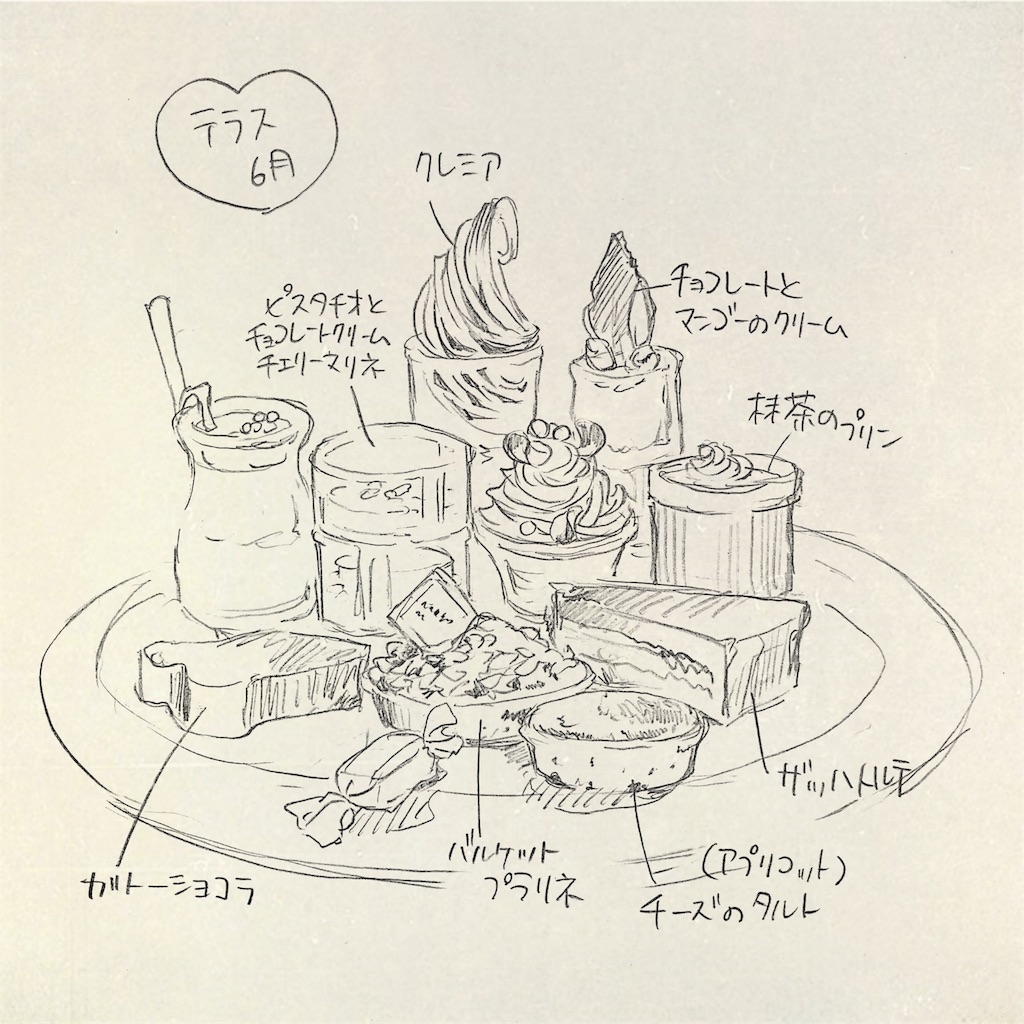 テラス
6月
クレミア
ピスタチオと
チョコレートクリーム
チェリーヌリネ
チョコレートと
マンゴーのクリーム
抹茶のプリン
ザッハトルテ
バルケット
プラリネ
(アプリコット)
チーズのタルト
ガトーショコラ